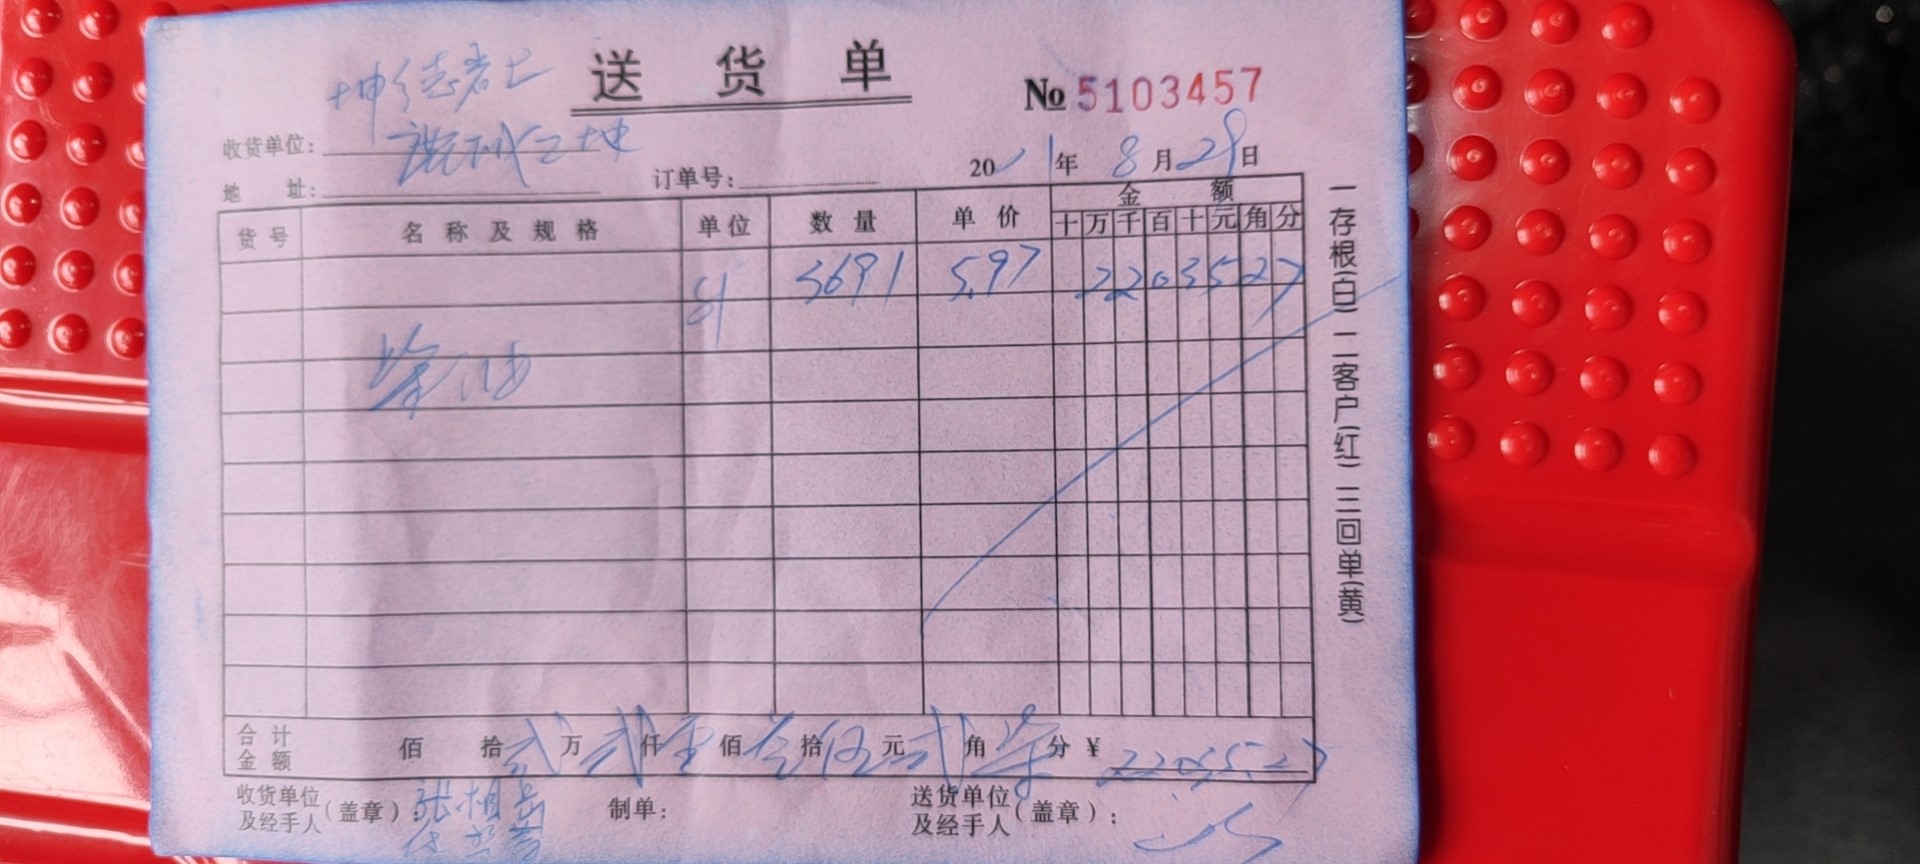 送货单
No 5103457
收货单位：
地 址： 订单号： 2021年8月29日
货号 名称及规格 单位 数量 单价 金额
十万千百十元角分
升 3691 5.97 2203527
柴油
合计金额 佰 拾贰万贰仟零佰叁拾伍元贰角柒分 ¥ 22035.27
收货单位及经手人（盖章）： 张相 制单： 送货单位及经手人（盖章）：
一存根(白) 二客户(红) 三回单(黄)